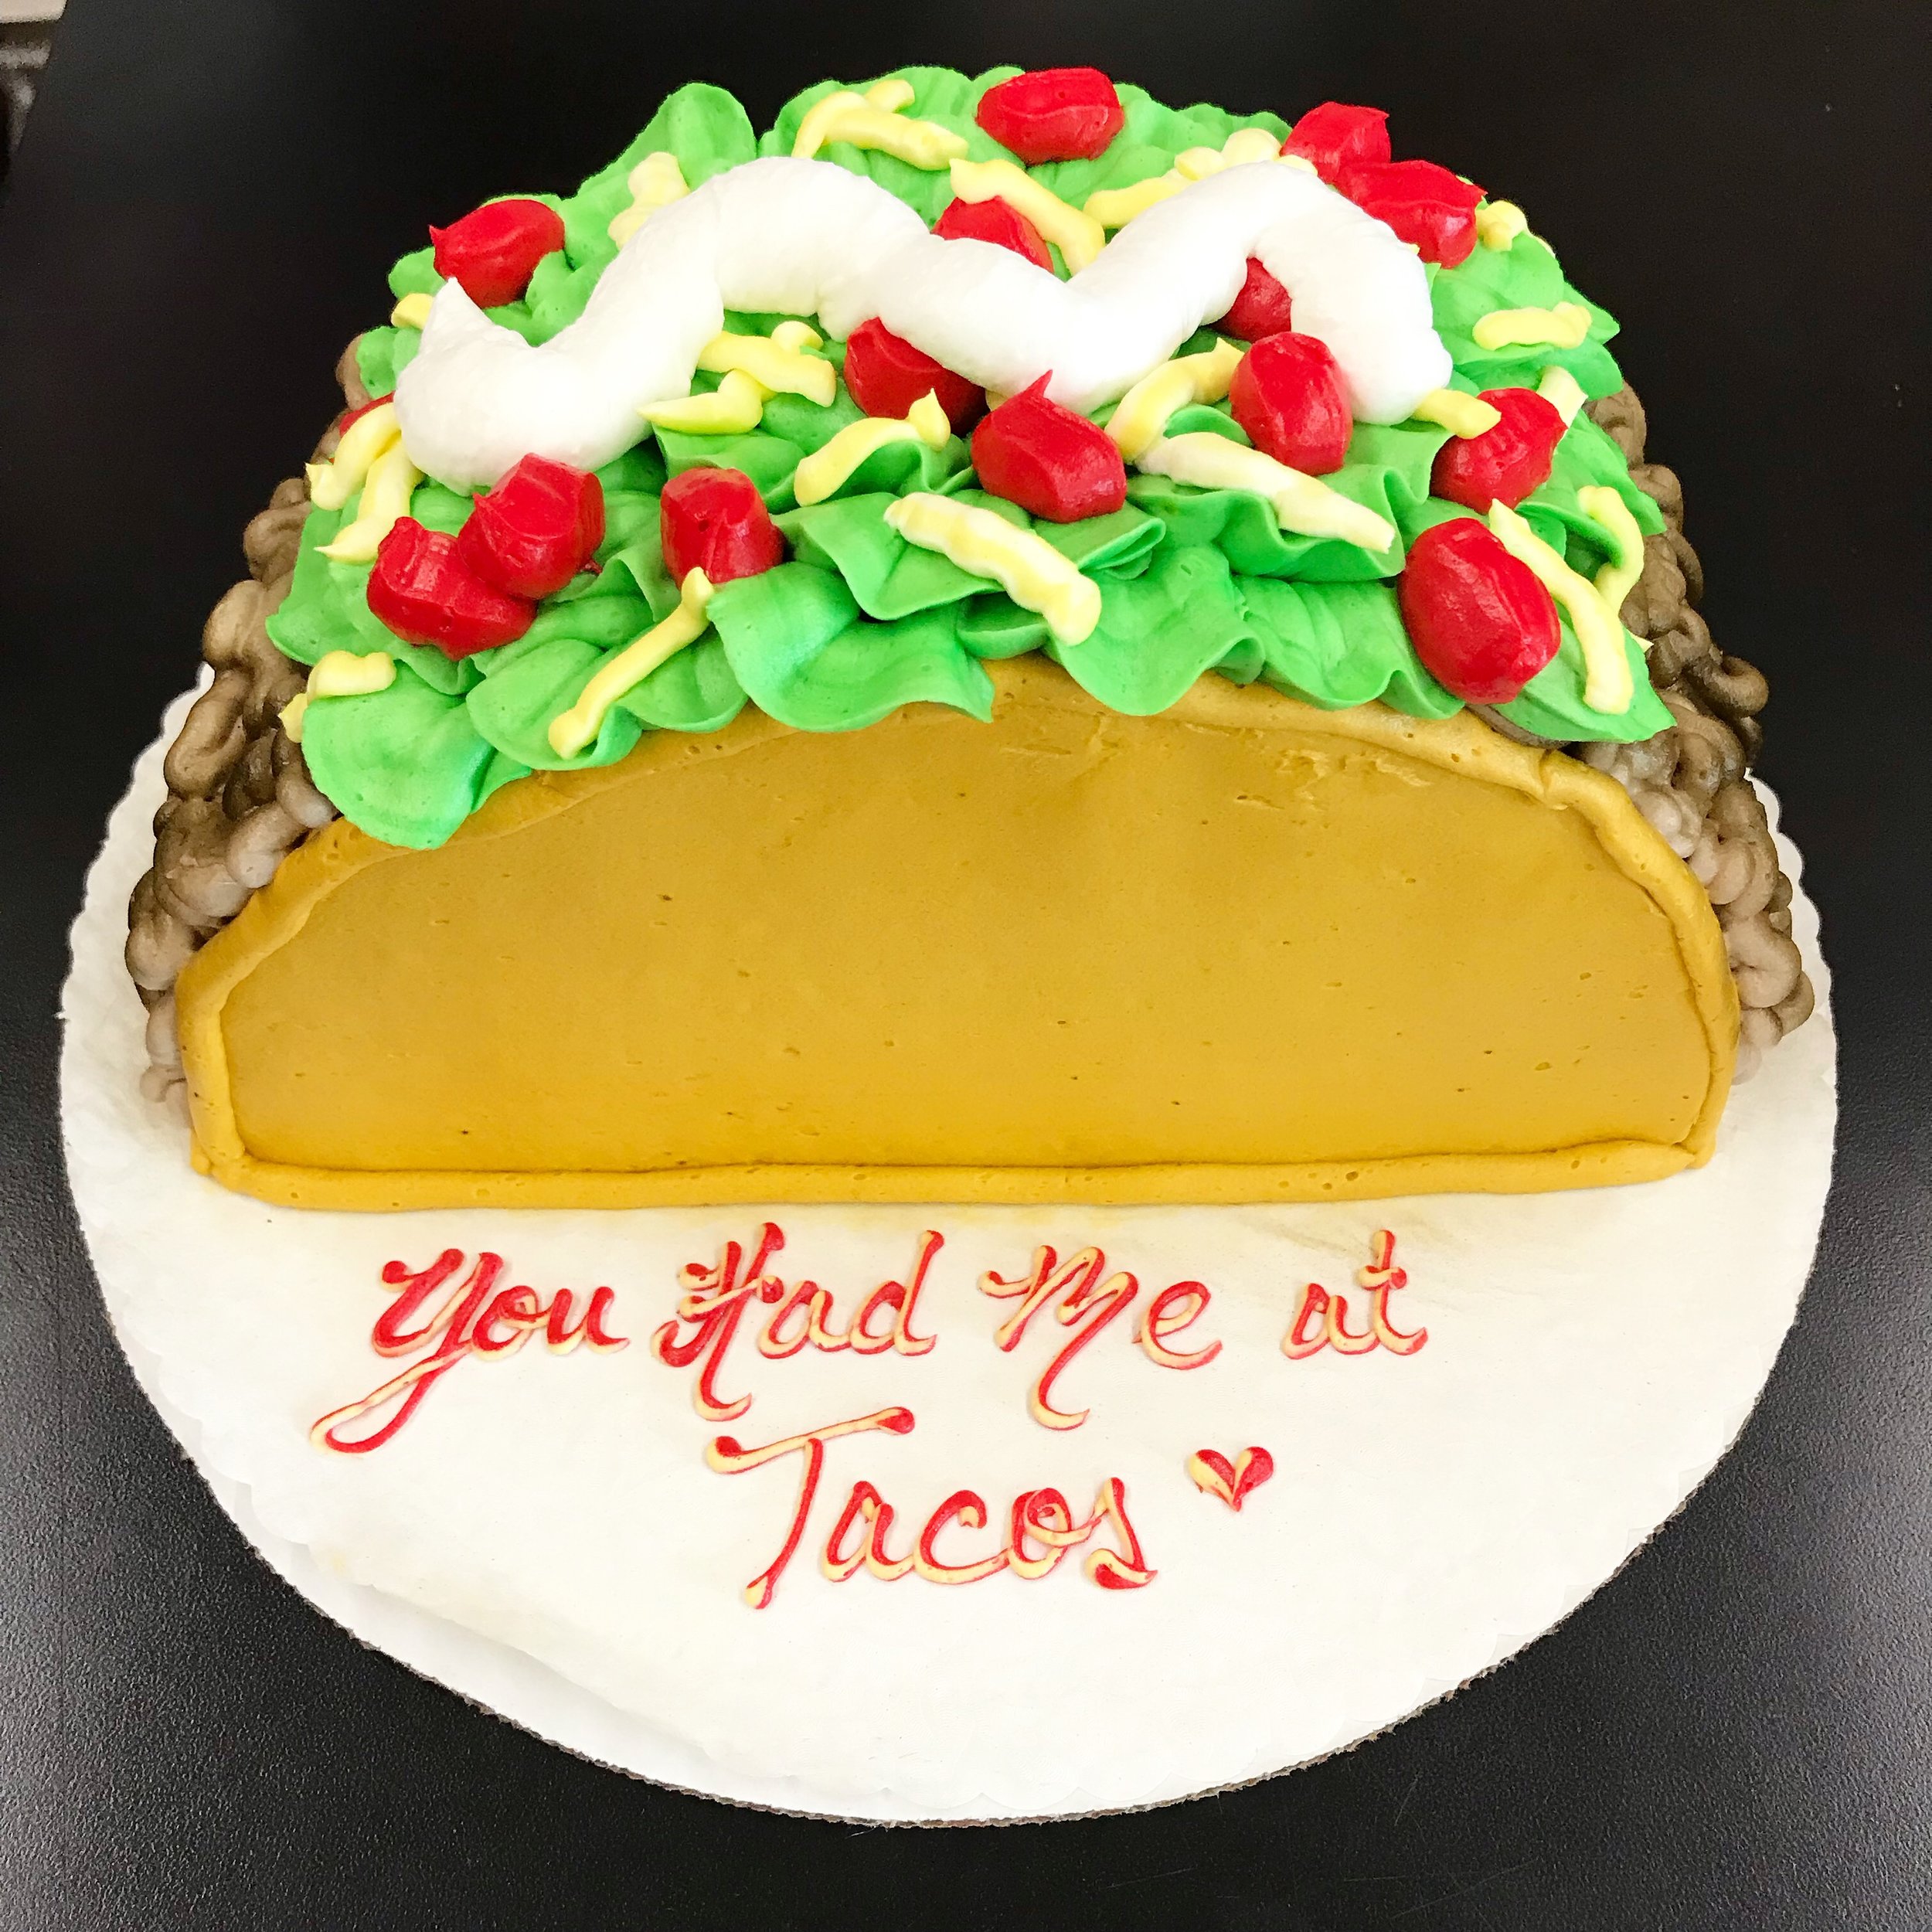 You Had Me at
Tacos ♥